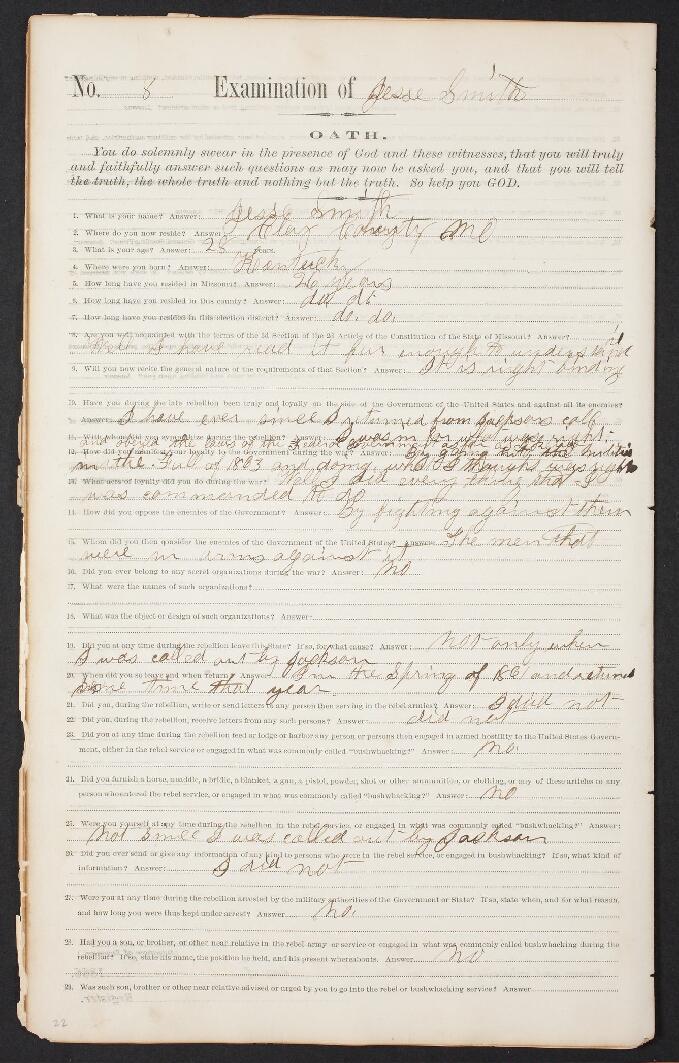 No. 8 Examination of Jesse Smith
OATH.
You do solemnly swear in the presence of God and these witnesses, that you will truly
and faithfully answer such questions as may now be asked you, and that you will tell
the truth, the whole truth and nothing but the truth. So help you GOD.
1. What is your name? Answer: Jesse Smith
2. Where do you now reside? Answer: Clay County Mo
3. What is your age? Answer: 28 years.
4. Where were you born? Answer: Kentucky
5. How long have you resided in Missouri? Answer: 26 years
6. How long have you resided in this county? Answer: do do
7. How long have you resided in this election district? Answer: do. do.
8. Are you well acquainted with the terms of the 3d Section of the 2d Article of the Constitution of the State of Missouri? Answer:
Well I have read it far enough to understand
9. Will you now recite the general nature of the requirements of that Section? Answer: It is right binding
10. Have you during the late rebellion been truly and loyally on the side of the Government of the United States and against all its enemies?
Answer: I have ever since I returned from Jackson call
and obeyed the laws of the Federal Government as far as
11. With whom did you sympathise during the rebellion? Answer: I was in for what was right.
12. How did you manifest your loyalty to the Government during the war? Answer: By going with the militia
in the Fall of 1863 and doing what I thought was right
13. What acts of loyalty did you do during the war? Well I did every thing that I
was commanded to do
14. How did you oppose the enemies of the Government? Answer: By fighting against them
15. Whom did you then consider the enemies of the Government of the United States? Answer: The men that
were in arms against it
16. Did you ever belong to any secret organizations during the war? Answer: No
17. What were the names of such organizations?
18. What was the object or design of such organizations? Answer:
19. Did you at any time during the rebellion leave this State? If so, for what cause? Answer: Not only when
I was called out by Jackson
20. When did you so leave and when return? Answer: In the Spring of 1861 and returned
some time that year.
21. Did you, during the rebellion, write or send letters to any person then serving in the rebel armies? Answer: I did not
22. Did you, during the rebellion, receive letters from any such persons? Answer: did not
23. Did you at any time during the rebellion feed or lodge or harbor any person or persons then engaged in armed hostility to the United States Govern-
ment, either in the rebel service or engaged in what was commonly called "bushwhacking?" Answer: No.
24. Did you furnish a horse, saddle, a bridle, a blanket, a gun, a pistol, powder, shot or other ammunition, or clothing, or any of these articles to any
person who entered the rebel service, or engaged in what was commonly called "bushwhacking?" Answer: No
25. Were you yourself at any time during the rebellion in the rebel service, or engaged in what was commonly called "bushwhacking?" Answer:
Not since I was called out by Jackson
26. Did you ever send or give any information of any kind to persons who were in the rebel service, or engaged in bushwhacking? If so, what kind of
information? Answer: I did not
27. Were you at any time during the rebellion arrested by the military authorities of the Government or State? If so, state when, and for what reason,
and how long you were thus kept under arrest? Answer: No.
28. Had you a son, or brother, or other near relative in the rebel army or service or engaged in what was commonly called bushwhacking during the
rebellion? If so, state his name, the position he held, and his present whereabouts. Answer: No
29. Was such son, brother or other near relative advised or urged by you to go into the rebel or bushwhacking service? Answer:
22